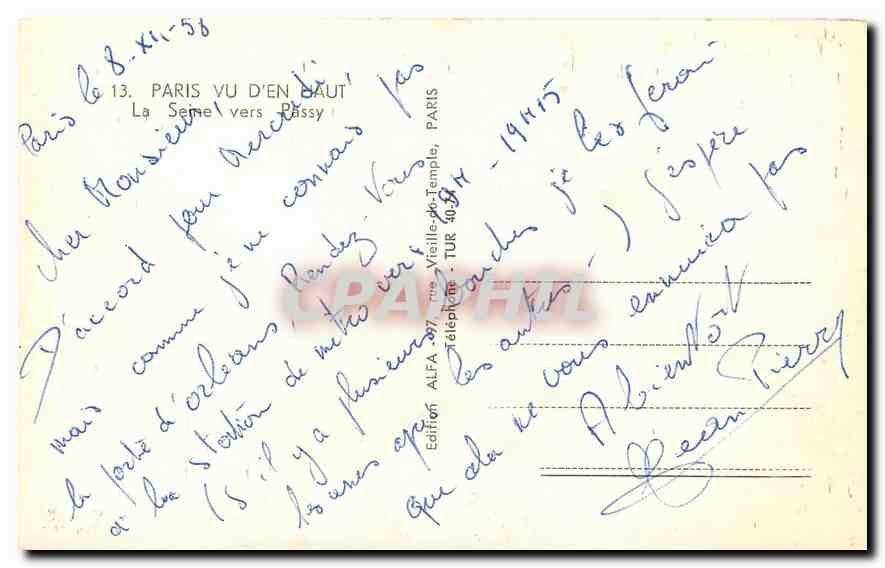 13. PARIS VU D'EN HAUT
La Seine vers Passy
Paris le 8-XII-58
Cher Monsieur,
D'accord pour Mercredi,
mais comme je ne connais pas
la porte d'orléans, Rendez-Vous
à la station de métro vers 19H - 19H15
(S'il y a plusieurs bouches je les ferai
les unes après les autres -) J'espère
que cela ne vous ennuiera pas
A bientôt
Jean Pierre
Edition ALFA - 97, rue Vieille-du-Temple, PARIS
Téléphone - TUR 40-74
CPAPHIL